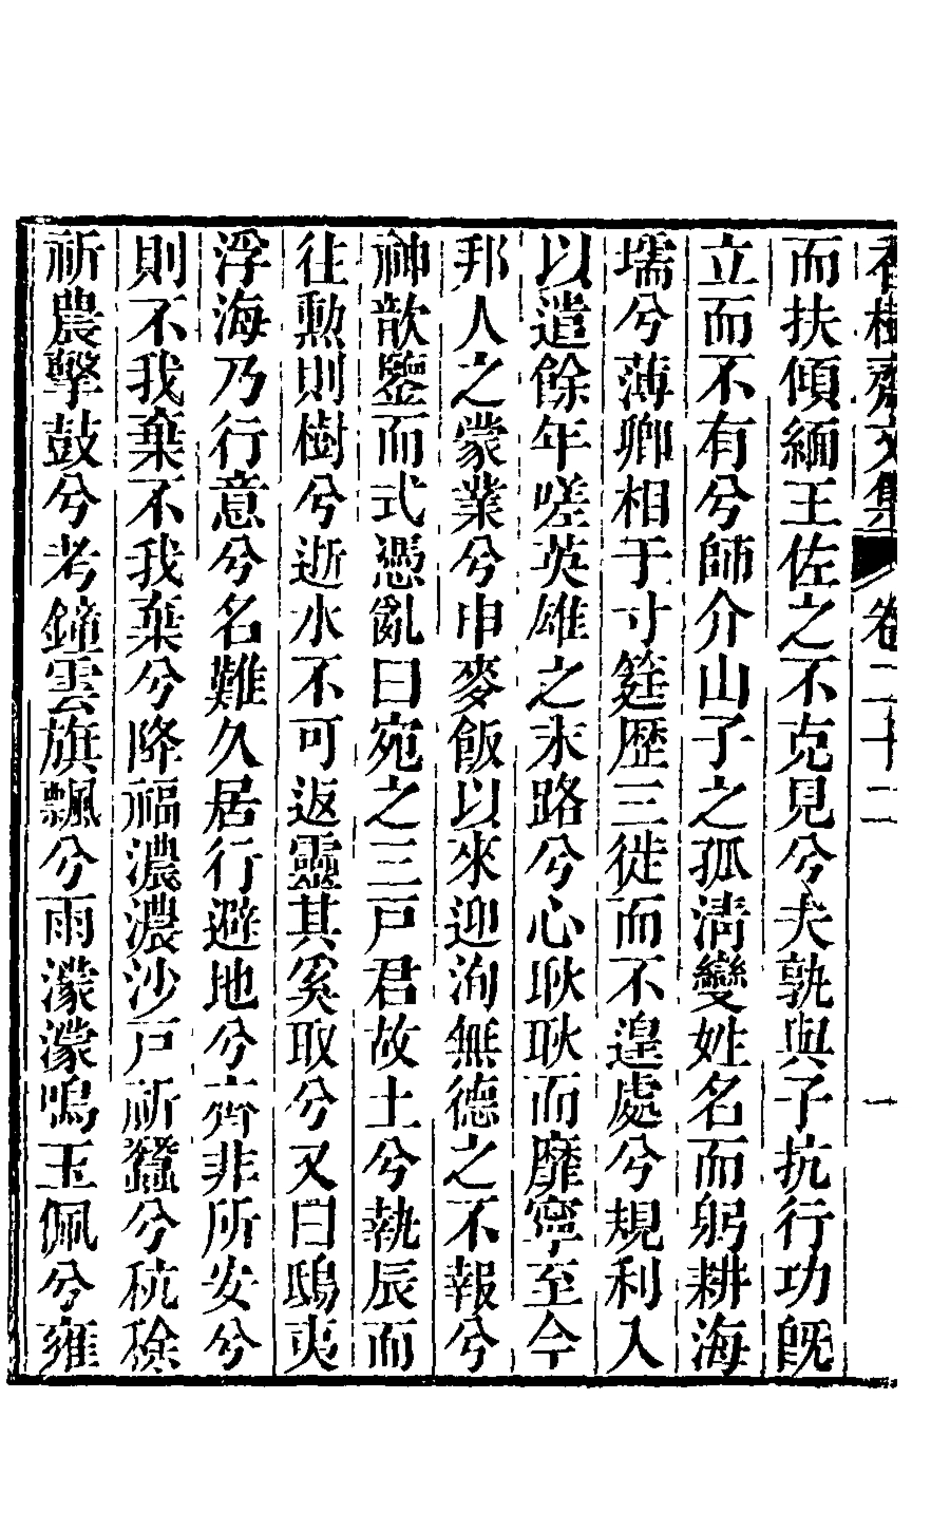 香樹齋文集 卷二十二 一
而扶傾緬王佐之不克見兮夫孰與子抗行功旣
立而不有兮師介山子之孤淸變姓名而躬耕海
壖兮薄卿相于寸筳歷三徙而不遑處兮規利入
以遣餘年嗟英雄之末路兮心耿耿而靡寧至今
邦人之蒙業兮申麥飯以來迎洵無德之不報兮
神歆鑒而式憑亂曰宛之三戸君故土兮執辰而
往勲則樹兮逝水不可返靈其奚取兮又曰鴟夷
浮海乃行意兮名難久居行避地兮齊非所安兮
則不我棄不我棄兮降福濃濃沙戸祈蠶兮秔稌
祈農擊鼓兮考鐘雲旗飄兮雨濛濛鳴玉佩兮雍